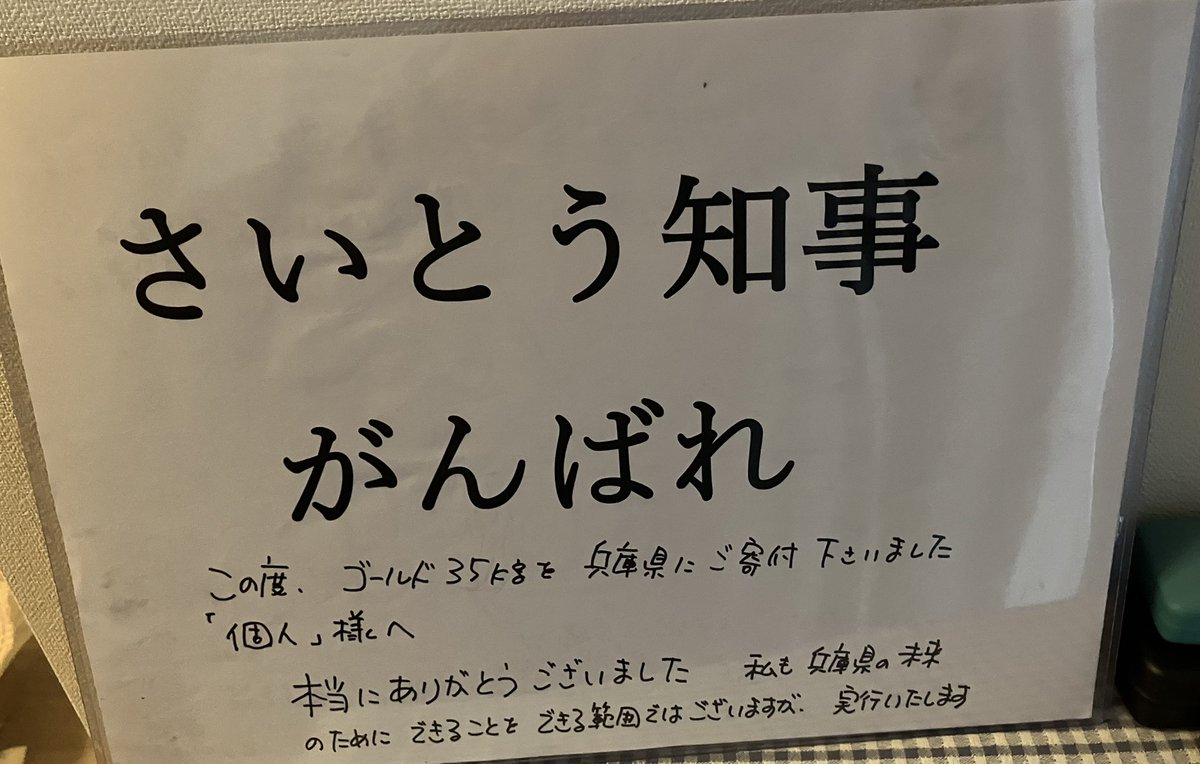 さいとう知事
がんばれ
この度、ゴールド35kgを兵庫県にご寄付下さいました
「個人」様へ
本当にありがとうございました 私も兵庫県の未来
のためにできることをできる範囲ではございますが、実行いたします